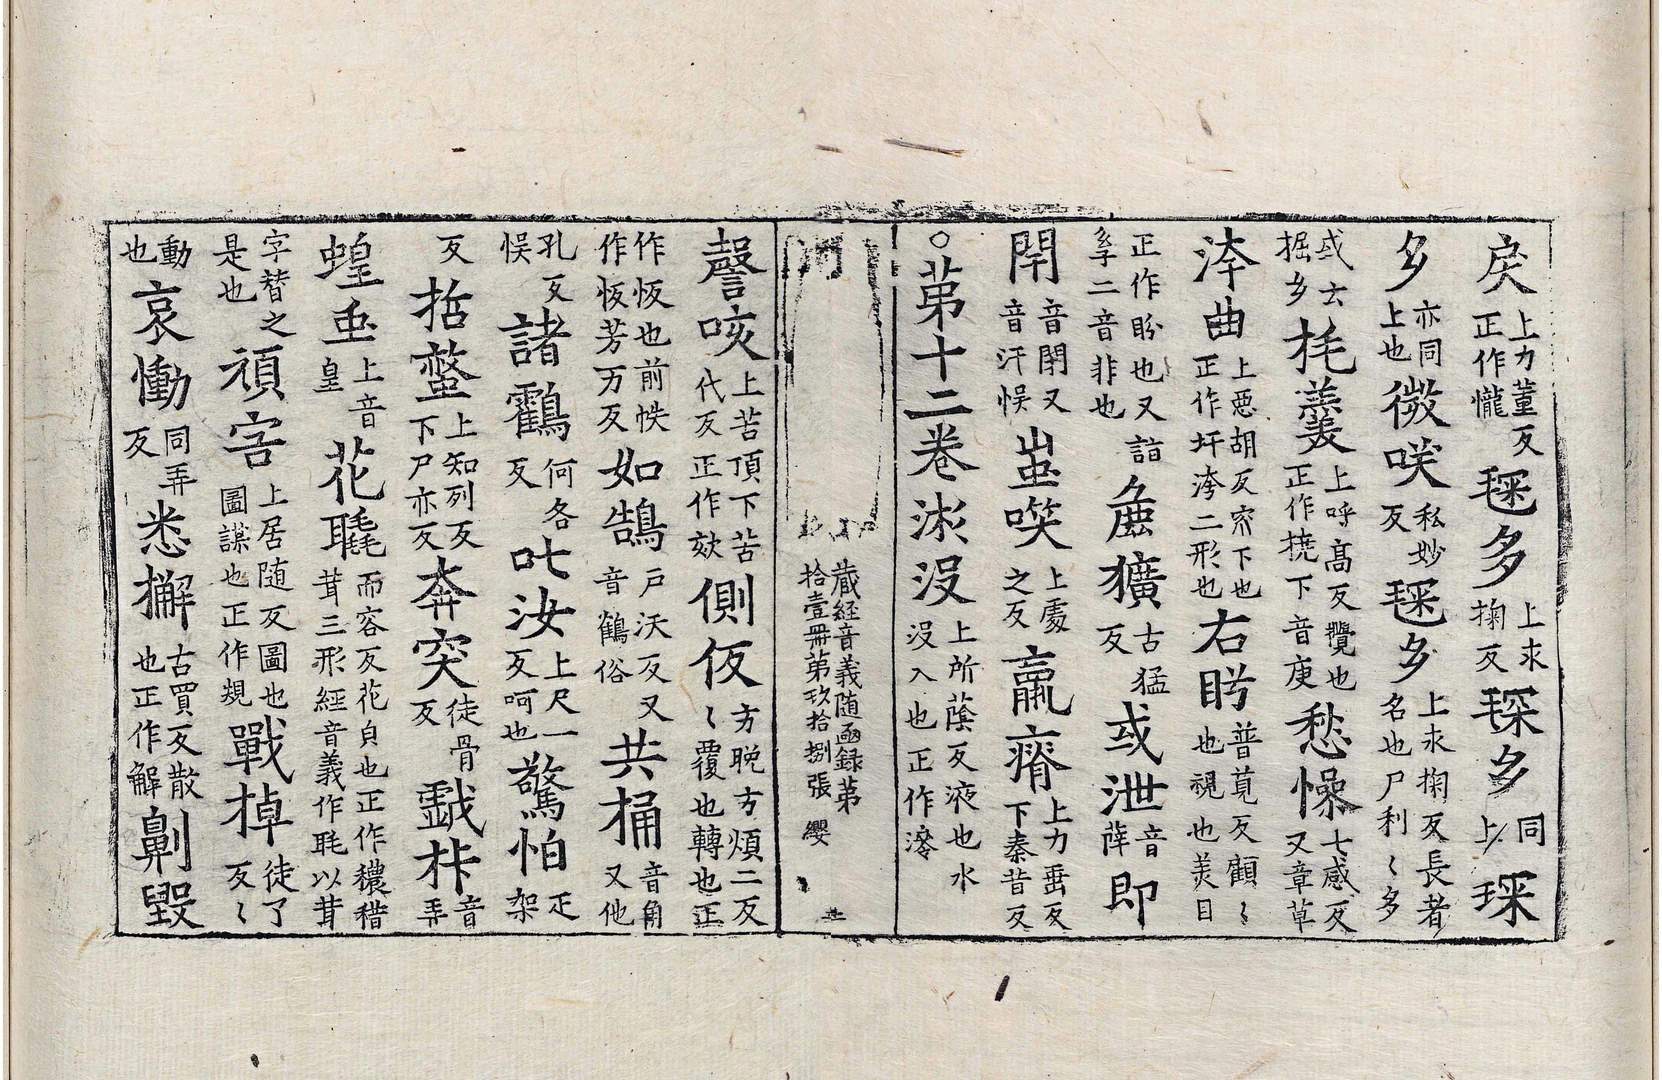 戾上力董反正作㦬毬多上求掬反㻑多同上㻑
多亦同上也微𠯗私妙反毬多上求掬反長者名也尸利〻多
或士掘多㧌羹上呼高反攪也正作撓下音庚愁懆七感反又章草
洿曲上惡胡反窊下也正作圩洿二形也右眄普莧反顧〻也視也美目
正作盼也又詣系二音非也麁獷古猛反或泄音薛即
閈音閈又音汗悮蚩㗛上處之反羸瘠上力垂反下秦昔反
○第十二卷淤没上所蔭反液也水没入也正作滲
藏経音義随函録第拾壹冊第玖拾捌張 纓
謦咳上苦頂下苦代反正作欬側仮方晚方煩二反〻覆也轉也正
作恢也前帙作恢芳万反如鵠戸沃反又音鶴俗共桶音角又他
孔反悮諸鸖何各反叱汝上尺一反呵也驚怕疋架
反掂螫上知列反下尸亦反奔突徒骨反戱桛音弄
蝗䖝上音皇花毦而容反花皃也正作穠䅖茸三形經音義作毦以茸
字替之是也頑害上居随反圖也圖謀也正作規戰掉徒了反〻
動也哀慟同弄反悉㩉古買反散也正作解劓毀